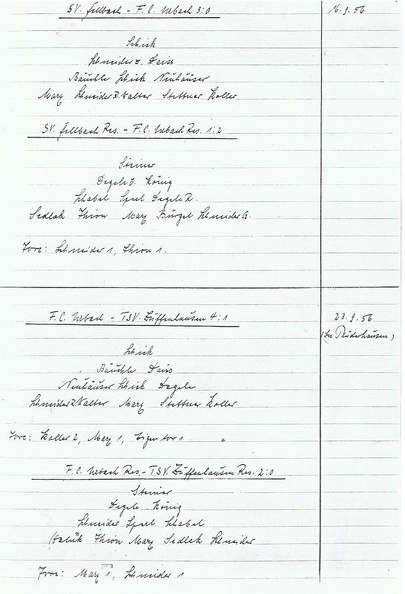 SV. Fellbach - F.C. Urbach 3:0
16.9.56
Schick
Schneider E. Daiss
Bäuchle Schick Neuhäuser
Marz Schneider R. Walter Stettner Koller
SV. Fellbach Res. - F.C. Urbach Res. 1:2
Steiner
Degele E. König
Schabel Sperl Degele R.
Sedlak Thron Marz Bürgel Schneider G.
Tore: Schneider 1, Thron 1.
F.C. Urbach - TSV. Zuffenhausen 4:1
23.9.56
Schick
Bäuchle Daiss
Neuhäuser Schick Degele
Schneider R. Walter Marz Stettner Koller
Tore: Koller 2, Marz 1, Eigentor 1
F.C. Urbach Res. - TSV. Zuffenhausen Res. 2:0
Steiner
Degele König
Schneider Sperl Schabel
Thron Marz Sedlak Schneider
Tore: Marz 1, Schneider 1